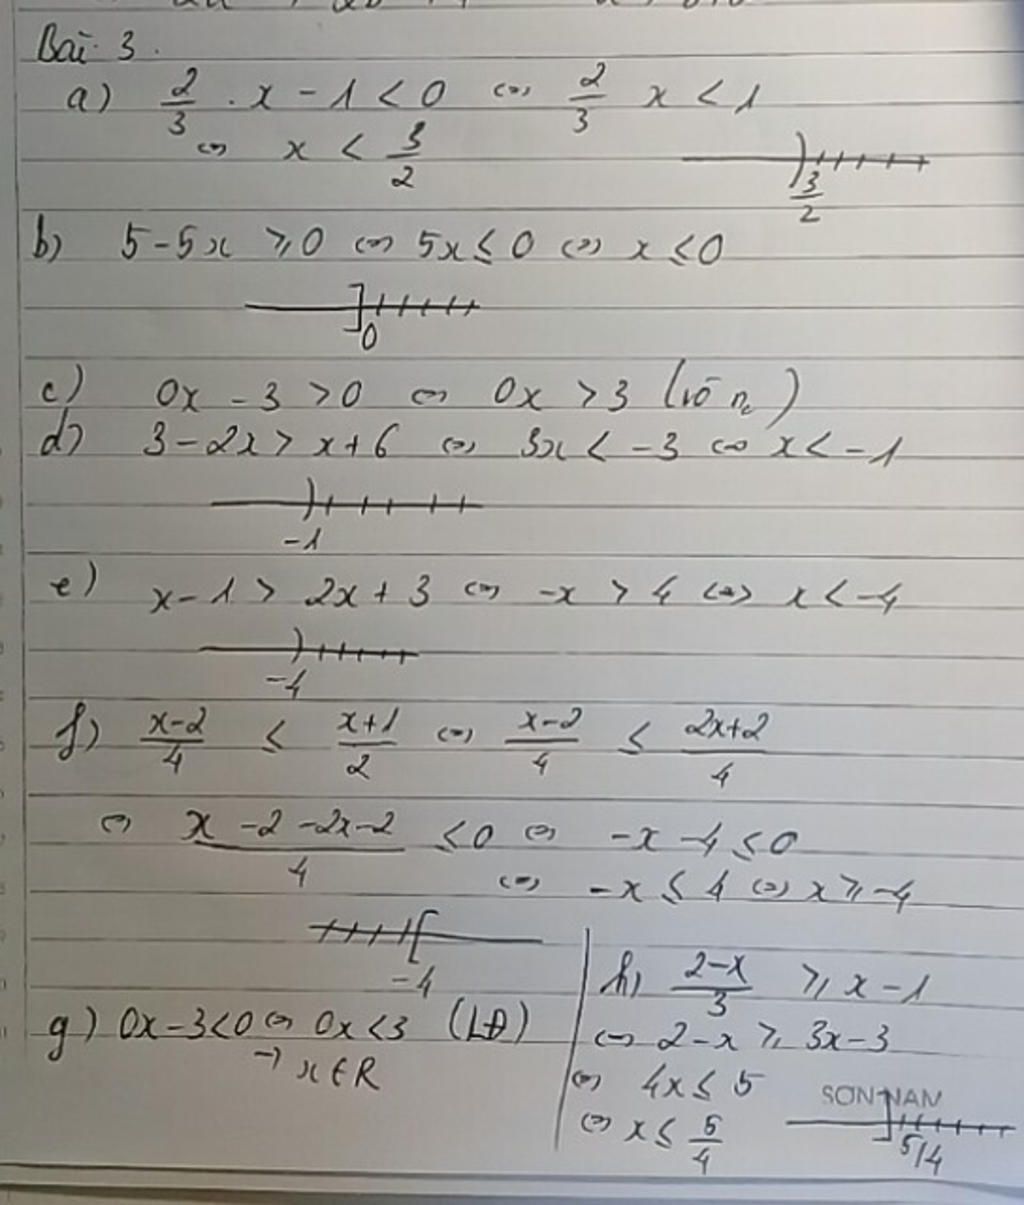 Bài 3.
a) 2/3 . x - 1 < 0 <=> 2/3 x < 1
<=> x < 3/2
3/2
b) 5 - 5x ⩾ 0 <=> 5x ≤ 0 <=> x ≤ 0
0
c) 0x - 3 > 0 <=> 0x > 3 (vô n₀)
d) 3 - 2x > x + 6 <=> 3x < -3 <=> x < -1
-1
e) x - 1 > 2x + 3 <=> -x > 4 <=> x < -4
-4
f) x-2/4 ≤ x+1/2 <=> x-2/4 ≤ 2x+2/4
<=> x - 2 - 2x - 2/4 ≤ 0 <=> -x - 4 ≤ 0
<=> -x ≤ 4 <=> x ⩾ -4
-4
g) 0x - 3 < 0 <=> 0x < 3 (LĐ)
→ x ∈ R
h) 2-x/3 ⩾ x - 1
<=> 2 - x ⩾ 3x - 3
<=> 4x ≤ 5
<=> x ≤ 5/4
SƠN NAM
5/4